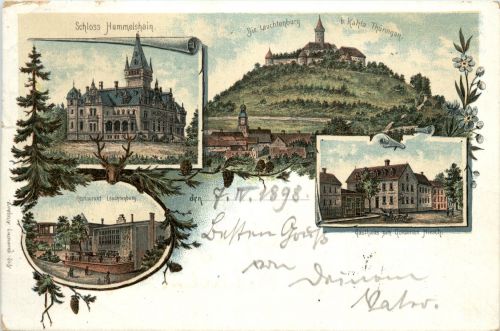 Schloss Hummelshain.
Die Leuchtenburg b. Kahla Thüringen.
Restaurant Leuchtenburg.
Gasthaus zum Goldenen Hirsch.
den 7. IV. 1898
Besten Gruß
von Deinem
Vater.